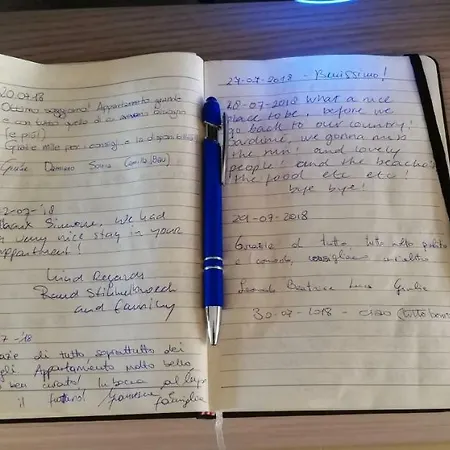 20.07.18
Ottimo soggiorno! Appartamento grande
e con tutto quello di cui avevamo bisogno
(e più).
Grazie mille per i consigli e la disponibilità
Grazie Damiano Sonia
2-07-'18
Simone, we had
very nice stay in your
appartment!
Kind Regards
Ruud
and family
7-'18
di tutto soprattutto dei
Appartamento molto bello
ben curato! In bocca al lupo
il futuro!
famiglia
27-07-2018 - Benissimo!
28-07-2018 What a nice
place to be, before we
go back to our country!
Sardinië, we gonna miss
the sun! and lovely
people! and the beache's!
the food etc etc!
bye bye!
29-07-2018
Grazie di tutto, tutto molto pulito
e comodo, consigliamo
Beatrice Luca Giulia
30-07-2018 - ciao